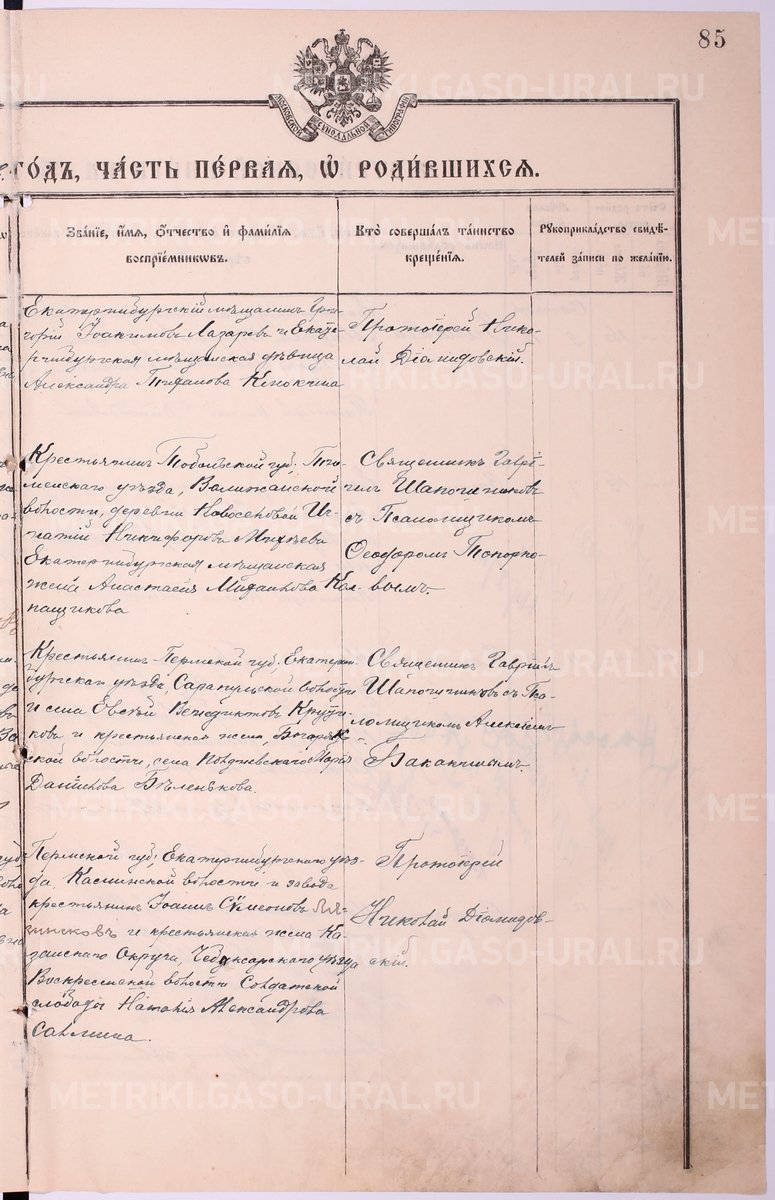 85
МОСКОВСКОЙ СѴНОДАЛЬНОЙ ТИПОГРАФІИ
ГО́ДЪ, ЧА́СТЬ ПЕ́РВАЯ, Ѡ҆ РОДИ́ВШИХСЯ.
Зва́нїе, и҆́мѧ, ѻ҆́тчество и҆ фами́лїѧ
воспрїе́мникѡвъ.
Кто̀ соверша́лъ та́инство
креще́нїѧ.
Рꙋкоприкла́дство свидѣ́-
телей за́писи по жела́нїю.
Екатеринбургскій мѣщанинъ Гри-
горій Іоакимовъ Лазаревъ и Екате-
ринбургская мѣщанская дѣвица
Александра
Протоіерей Нико-
лай Діомидовскій.
Крестьянинъ Тобольской губ., Тю-
менскаго уѣзда,
волости, деревни Новоселовой Иг-
натій Никифоровъ Михѣевъ
Екатеринбургская мѣщанская
жена Анастасія Кол-
пащикова
Священникъ Гаврі-
илъ Шапошниковъ
съ Псаломщикомъ
Ѳеодоромъ Топорко-
вымъ.
Крестьянинъ Пермской губ. Екатерин-
бургскаго уѣзда Сарапульской волости
и села Евсѣй Венедиктовъ Крути-
ковъ и крестьянская жена, Багаряк-
ской волости, села Марія
Даніилова Бѣленькова.
Священникъ Гавріилъ
Шапошниковъ съ Пса-
ломщикомъ Алексѣемъ
Пермской губ. Екатеринбургскаго уѣз-
да, Каслинской волости и завода
крестьянинъ Іоаннъ Сѵмеоновъ
и крестьянская жена Ка-
занскаго Округа, Чебоксарскаго уѣзда
Воскресенской волости Солдатской
слободы Наталія Александрова
Савлина.
Протоіерей
Николай Діомидов-
скій.
METRIKI.GASO-URAL.RU